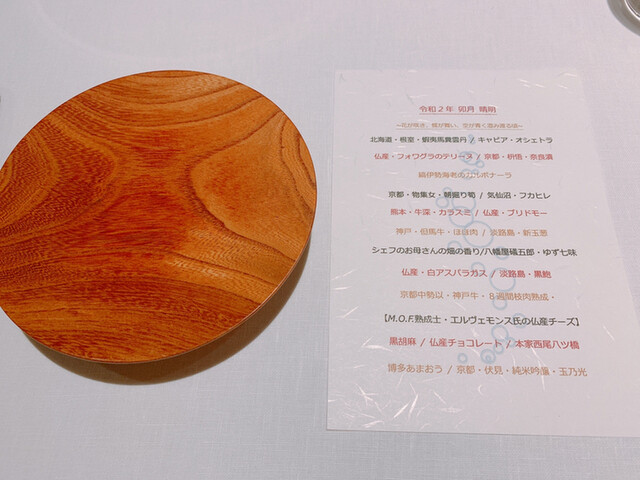 令和２年 卯月 晴明
~花が咲き、蝶が舞い、空が青く澄み渡る頃~
北海道・根室・蝦夷馬糞雲丹 / キャビア・オシェトラ
仏産・フォワグラのテリーヌ / 京都・枡悟・奈良漬
縞伊勢海老のカルボナーラ
京都・物集女・朝掘り筍 / 気仙沼・フカヒレ
熊本・牛深・カラスミ / 仏産・ブリドモー
神戸・但馬牛・ほほ肉 / 淡路島・新玉葱
シェフのお母さんの畑の香り/八幡屋礒五郎・ゆず七味
仏産・白アスパラガス / 淡路島・黒鮑
京都中勢以・神戸牛・８週間枝肉熟成・
【M.O.F.熟成士・エルヴェモンス氏の仏産チーズ】
黒胡麻 / 仏産チョコレート / 本家西尾八ツ橋
博多あまおう / 京都・伏見・純米吟醸・玉乃光